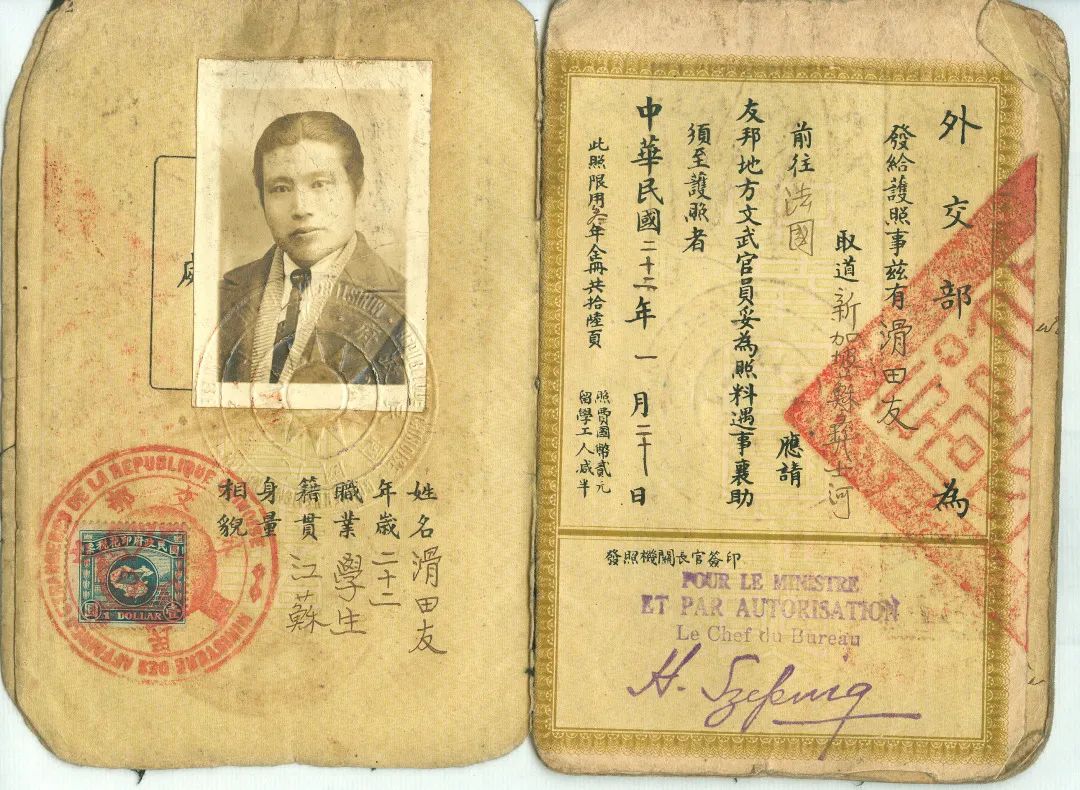 外交部為
發給護照事茲有滑田友
取道新加坡蘇彝士河
前往法國 應請
友邦地方文武官員妥為照料遇事襄助
須至護照者
中華民國二十二年一月二十日
此照限用年全冊共拾陸頁
照費國幣貳元
留學工人减半
發照機關長官簽印
POUR LE MINISTRE
ET PAR AUTORISATION
Le Chef du Bureau
2
姓名滑田友
年歲二十二
職業學生
籍貫江蘇
身量
相貌
MINISTERE DES AFFAIRES ETRANGERES DE LA REPUBLIQUE
國民政府印花稅票
1 DOLLAR